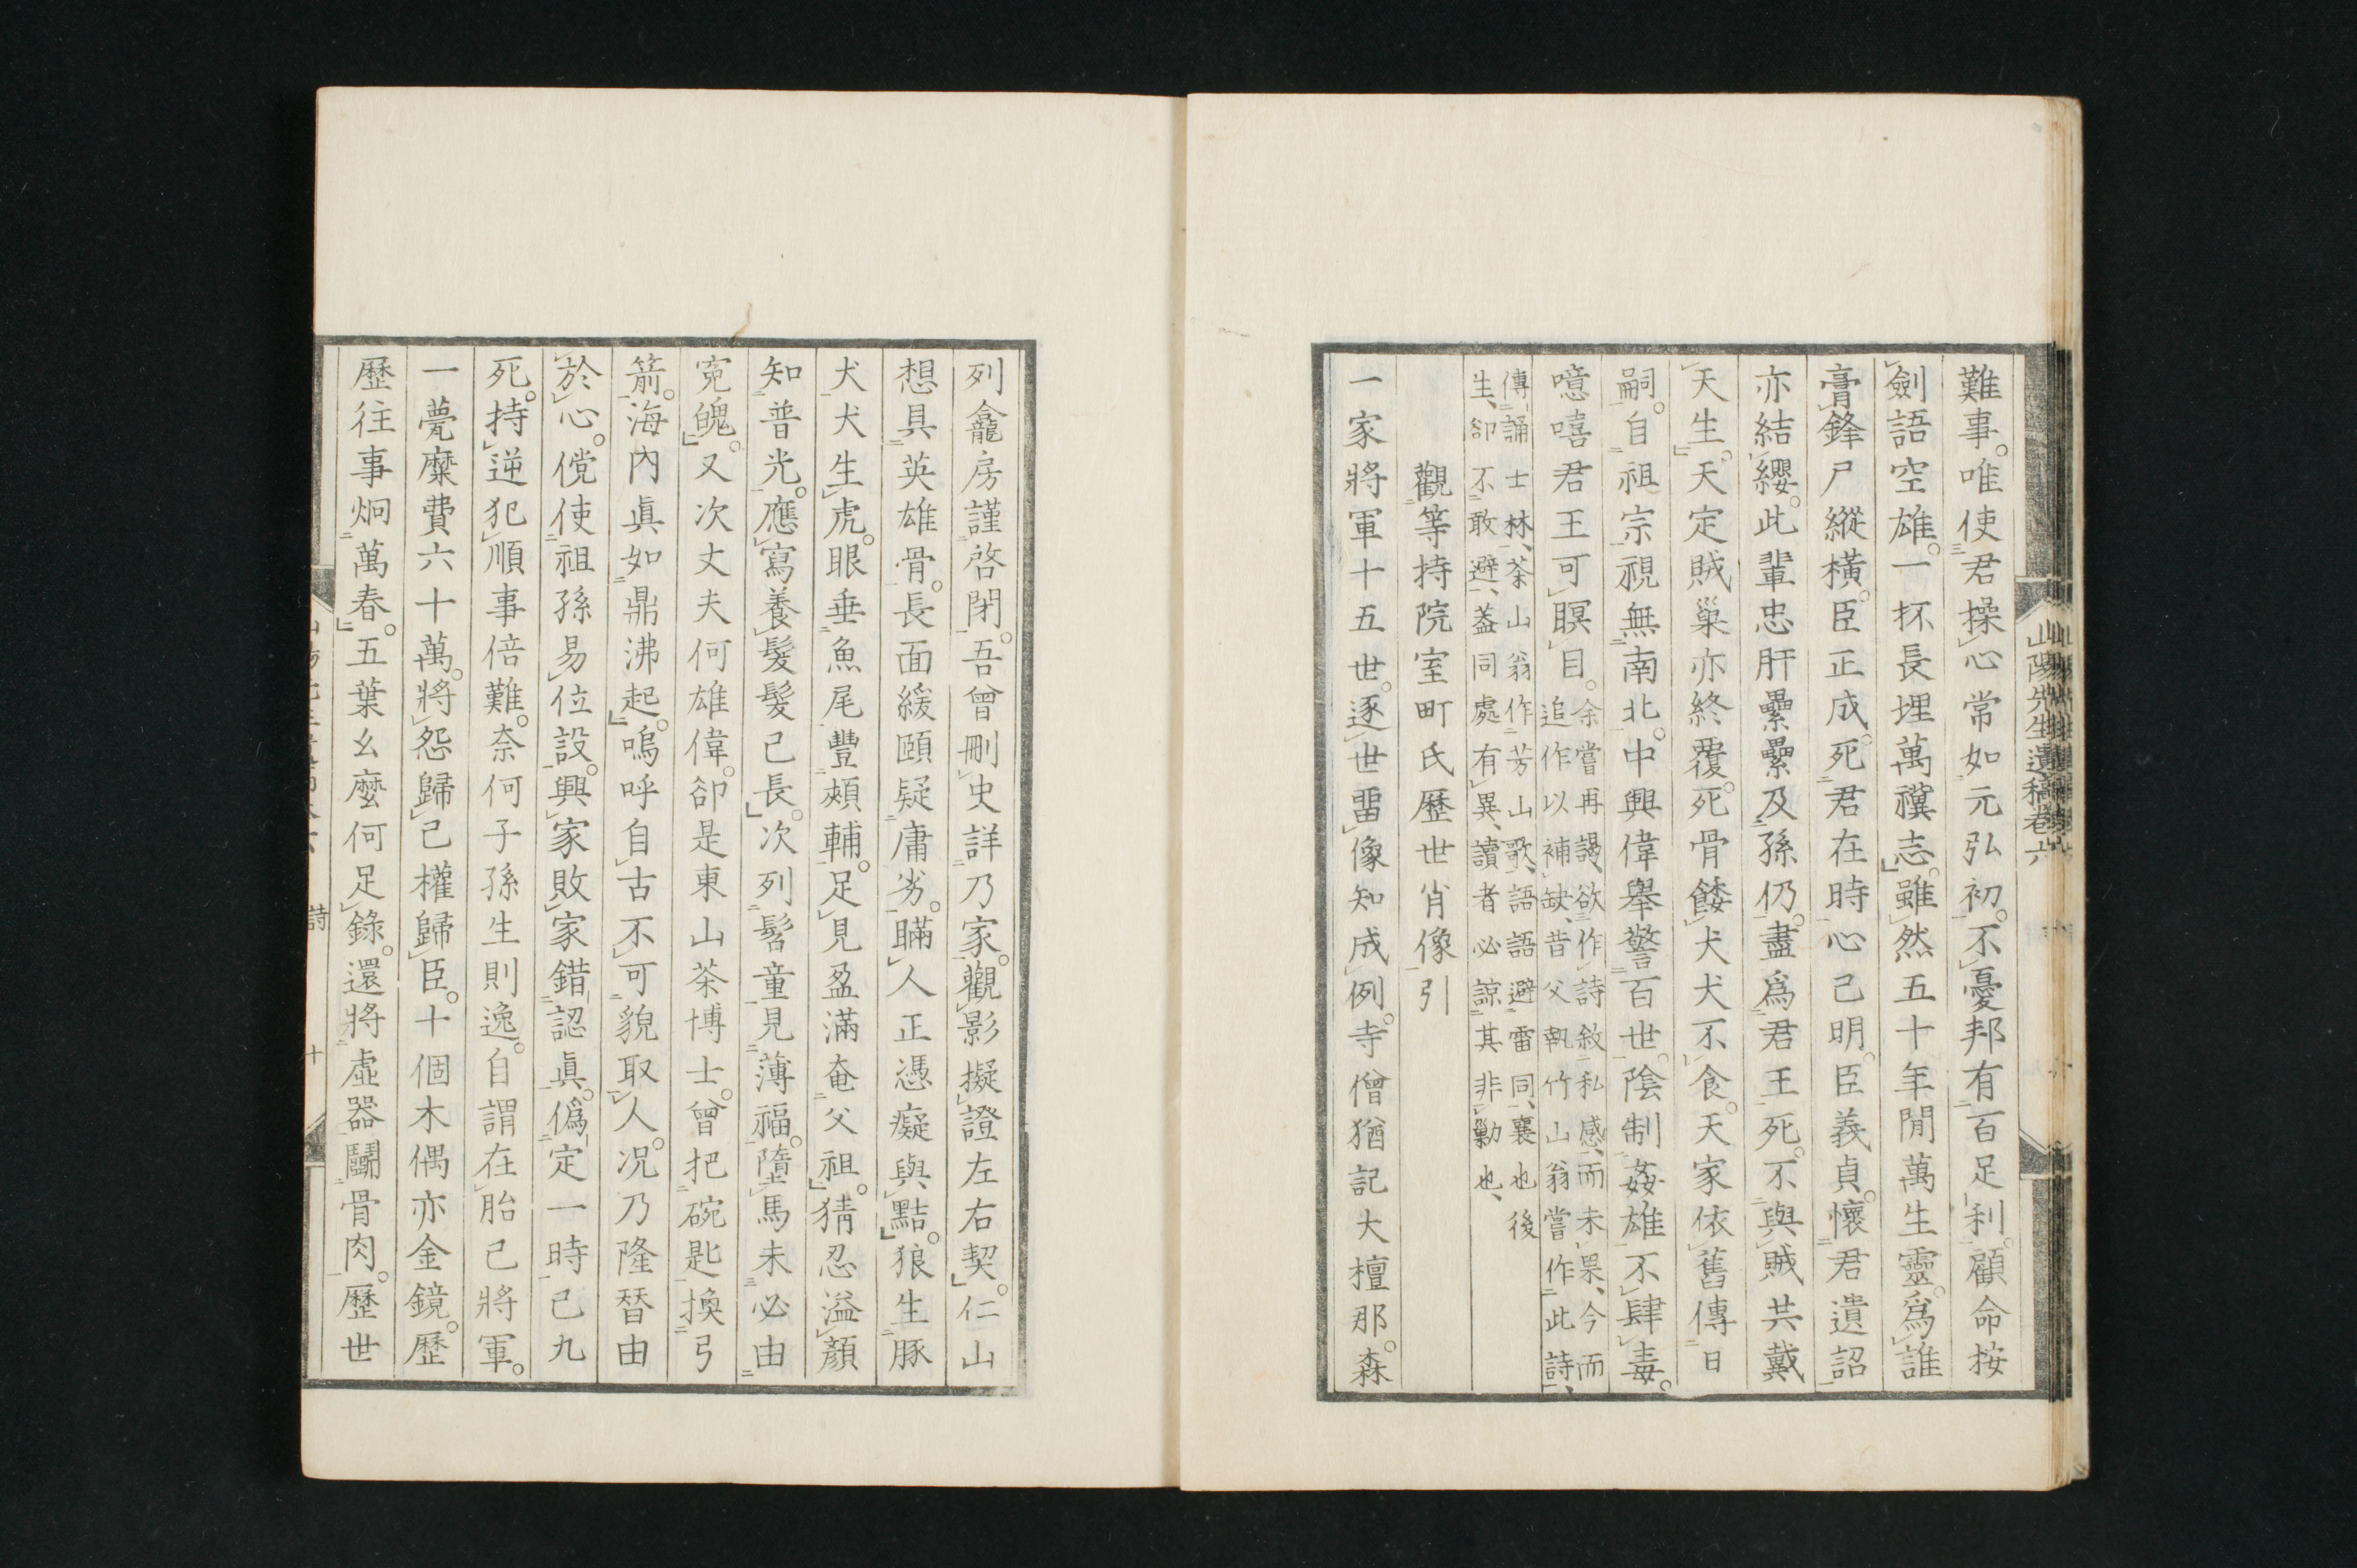 山陽先生遺稿卷六
難事。唯使君操心常如元弘初。不憂邦有百足利。顧命按
劍語空雄。一抔長埋萬襈志。雖然五十年閒萬生靈。爲誰
膏鋒尸縱橫。臣正成。死君在時心己明。臣義貞。懷君遺詔
亦結纓。此輩忠肝纍纍及孫仍。盡爲君王死。不與賊共戴
天生。天定賊巢亦終覆。死骨餧犬犬不食。天家依舊傳日
嗣。自祖宗視無南北。中興偉舉警百世。陰制姦雄不肆毒。
噫嘻君王可瞑目。余嘗再謁、欲作詩敘私感、而未果、今而
追作以補缺、昔父執竹山翁嘗作此詩、
傳誦士林、茶山翁作芳山歌、語語避雷同、襄也後
生、卻不敢避、蓋同處有異、讀者必諒其非勦也、
觀等持院室町氏歷世肖像引
一家將軍十五世。逐世畱像知成例。寺僧猶記大檀那。森
列龕房謹啓閉。吾曾刪史詳乃家。觀影擬證左右契。仁山
想具英雄骨。長面緩頤疑庸劣。瞞人正憑癡與黠。狼生豚
犬犬生虎。眼垂魚尾豐頰輔。足見盈滿奄父祖。猜忍溢顏
知普光。應寫養髮髮己長。次列髫童見薄福。墮馬未必由
寃魄。又次丈夫何雄偉。卻是東山茶博士。曾把碗匙換弓
箭。海內眞如鼎沸起。嗚呼自古不可貌取人。况乃隆替由
於心。儻使祖孫易位設。興家敗家錯認眞。僞定一時己九
死。持逆犯順事倍難。奈何子孫生則逸。自謂在胎己將軍。
一甍糜費六十萬。將怨歸己權歸臣。十個木偶亦金鏡。歷
歷往事炯萬春。五葉幺麼何足錄。還將虛器鬪骨肉。歷世
詩
十